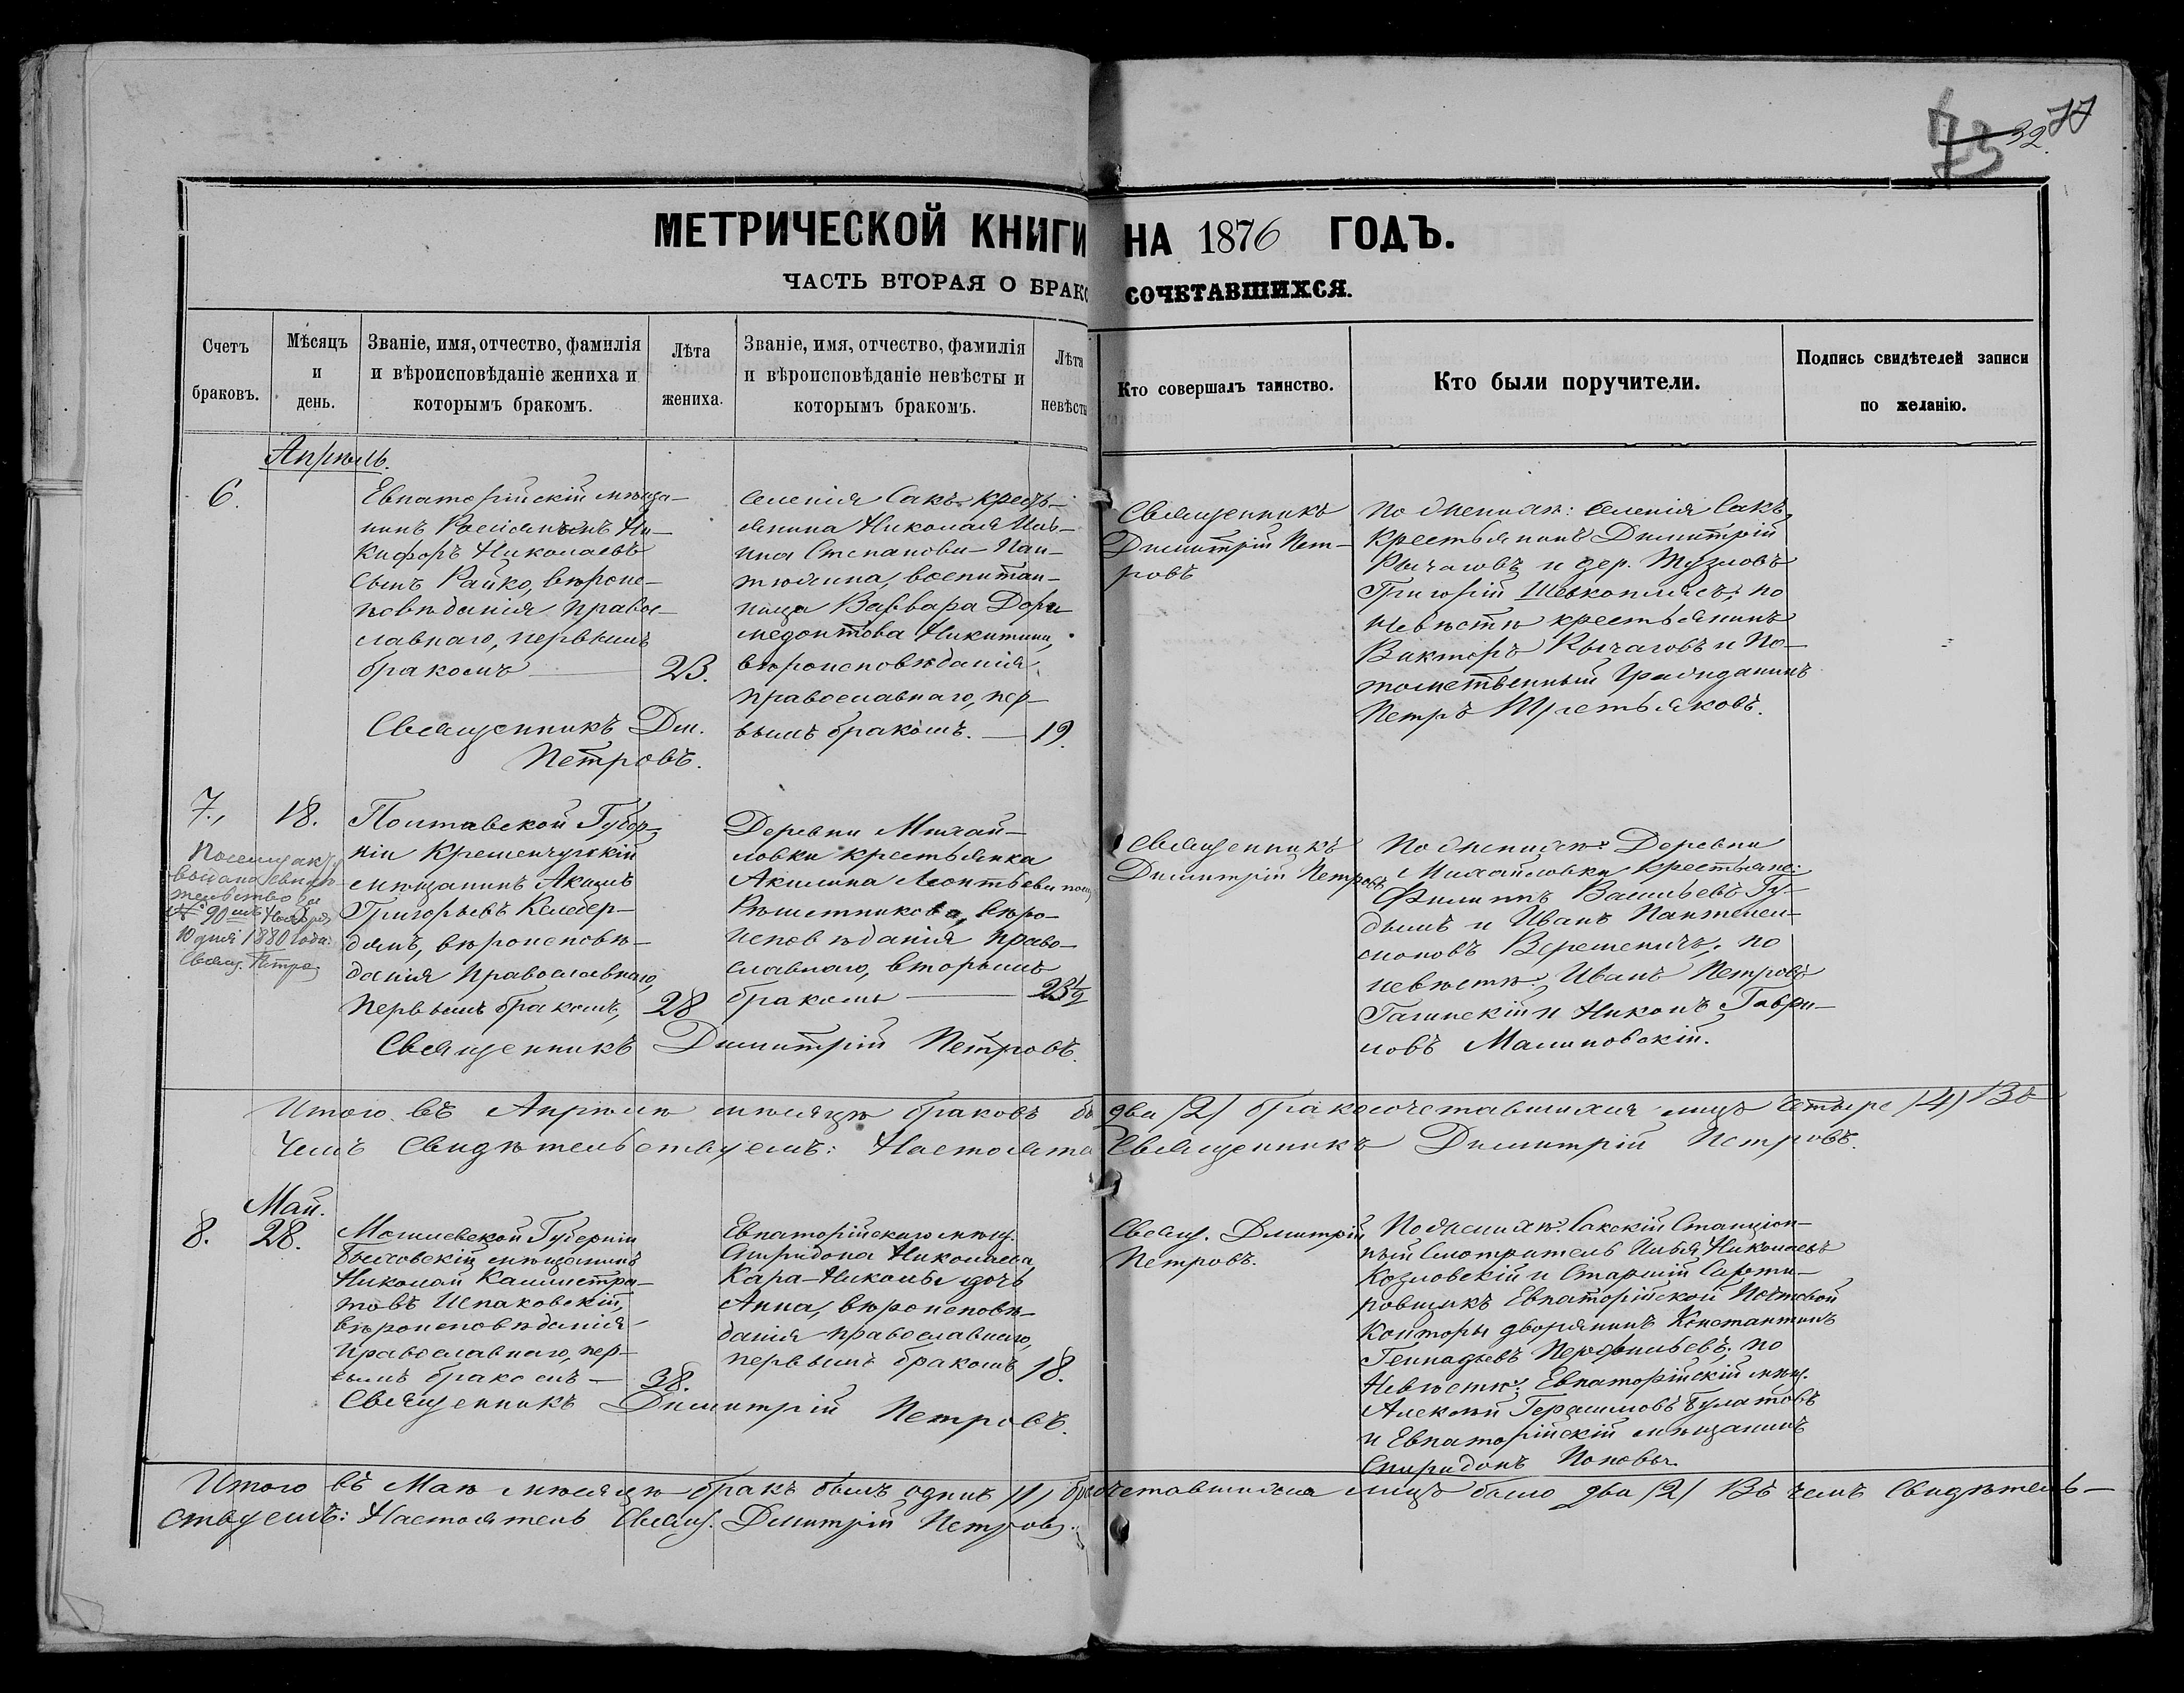 77
32.
73
МЕТРИЧЕСКОЙ КНИГИ НА 1876 ГОДЪ.
ЧАСТЬ ВТОРАЯ О БРАКО СОЧЕТАВШИХСЯ.
Счетъ браковъ.
Мѣсяцъ и день.
Званіе, имя, отчество, фамилія и вѣроисповѣданіе жениха и которымъ бракомъ.
Лѣта жениха.
Званіе, имя, отчество, фамилія и вѣроисповѣданіе невѣсты и которымъ бракомъ.
Лѣта невѣсты
Кто совершалъ таинство.
Кто были поручители.
Подпись свидѣтелей записи по желанію.
Апрѣль.
6.
Евпаторійскій мѣща-
нинъ Ни-
кифоръ Николаевъ
сынъ Райко, вѣроис-
повѣданія Правос-
лавнаго, первымъ
бракомъ
23.
Священникъ Дм.
Петровъ.
селенія Сакъ кресть-
янина Николая Иль-
ина Степанова Пан-
тюлина, воспитан-
ница Варвара Дори
медонтова Никитина,
вѣроисповѣданія
православнаго, пер-
вымъ бракомъ.
19.
Священникъ
Димитрій Пет-
ровъ
По женихѣ: селенія Сакъ,
крестьянинъ Димитрій
Рычаговъ и дер. Тузловъ
Григорій Шевкоплясъ; по
невѣстѣ крестьянинъ
Викторъ Рычаговъ и По-
томственный Гражданинъ
Петръ Третьяковъ.
7.,
18.
Посему акту
выдано свидѣ-
тельство за
№ 90 мъ Ноября
10 дня 1880 года.
Свящ. Петров
Полтавской Губер-
ніи Кременчугскій
мѣщанинъ Акимъ
Григорьевъ Келебер-
дянъ, вѣроисповѣ-
данія Православнаго,
первымъ бракомъ,
28
Деревни Михай-
ловки крестьянка
Акилина Леонтьева
Рѣшетникова, вѣро-
исповѣданія право-
славнаго, вторымъ
бракомъ
23½
Священникъ Димитрій Петровъ.
Священникъ
Димитрій Петровъ
По женихѣ: Деревни
Михайловки Крестьяне:
Филиппъ Васильевъ Гу-
дымъ и Иванъ Пантелеи-
моновъ Веремеичъ; по
невѣстѣ: Иванъ Петровъ
Галинскій и Никонъ Гаври-
ловъ Малиновскій.
Итого въ Апрѣлѣ мѣсяцѣ браковъ бы два /2/ бракосочетавшихся лицъ четыре /4/ Въ
чемъ свидѣтельствуемъ: Настояте Священникъ Димитрій Петровъ.
Май.
8.
28.
Могилевской Губерніи
Быховскій мѣщанинъ
Николай Каллистра-
товъ Испаковскій,
вѣроисповѣданія
Православнаго, пер-
вымъ бракомъ
38.
Евпаторійскаго мѣщ.
Спиридона Николаева
Кара-Николы дочь
Анна, вѣроисповѣ-
данія православнаго,
первымъ бракомъ
18.
Священникъ Димитрій Петровъ.
Свящ. Димитрій
Петровъ.
По женихѣ: Сакскій Станціон-
ный Смотритель Илья Николаевъ
Козловскій и Старшій Сорти-
ровщикъ Евпаторійской Почтовой
Конторы дворянинъ Константинъ
Геннадьевъ Перфильевъ; по
Невѣстѣ: Евпаторійскій мѣщ.
Алексѣй Герасимовъ Булатовъ
и Евпаторійскій мѣщанинъ
Спиридонъ Поповъ.
Итого въ Маѣ мѣсяцѣ бракъ былъ одинъ /1/ бра четавшихся лицъ было два /2/ Въ чемъ Свидѣтель-
ствуемъ: Настоятель Свящ. Димитрій Петровъ.